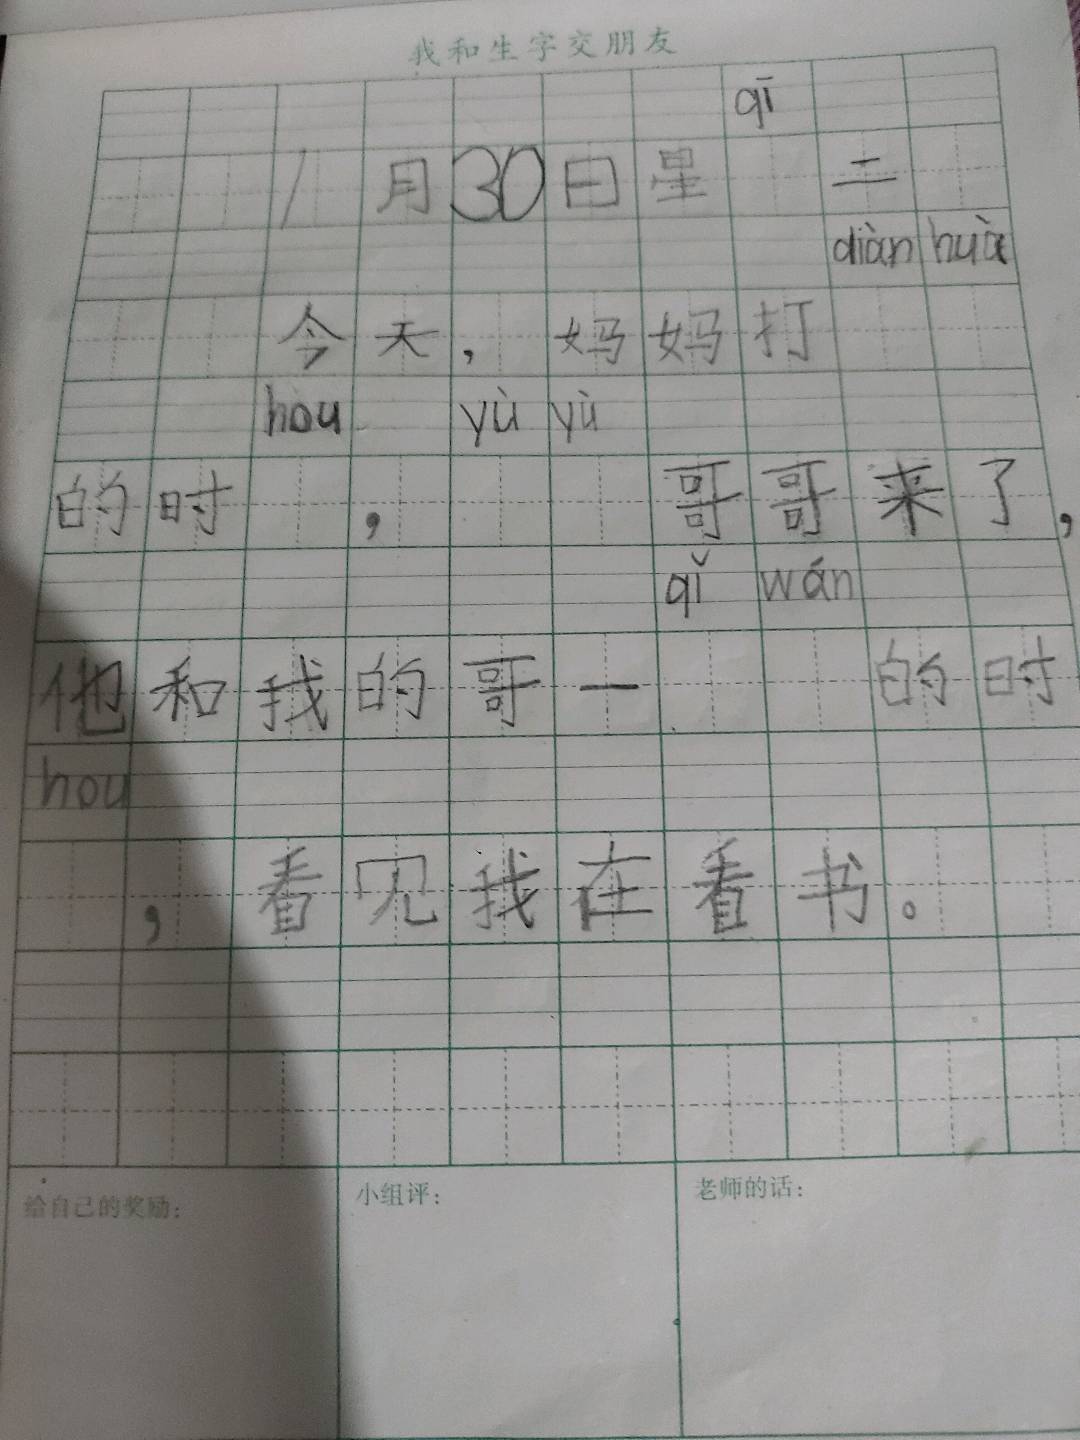 我和生字交朋友
qī
11月30日星 二
diàn huà
今天，妈妈打
hou yù yù
的时 ， 哥哥来了，
qǐ wán
他和我的哥一 的时
hou
，看见我在看书。
给自己的奖励： 小组评： 老师的话：